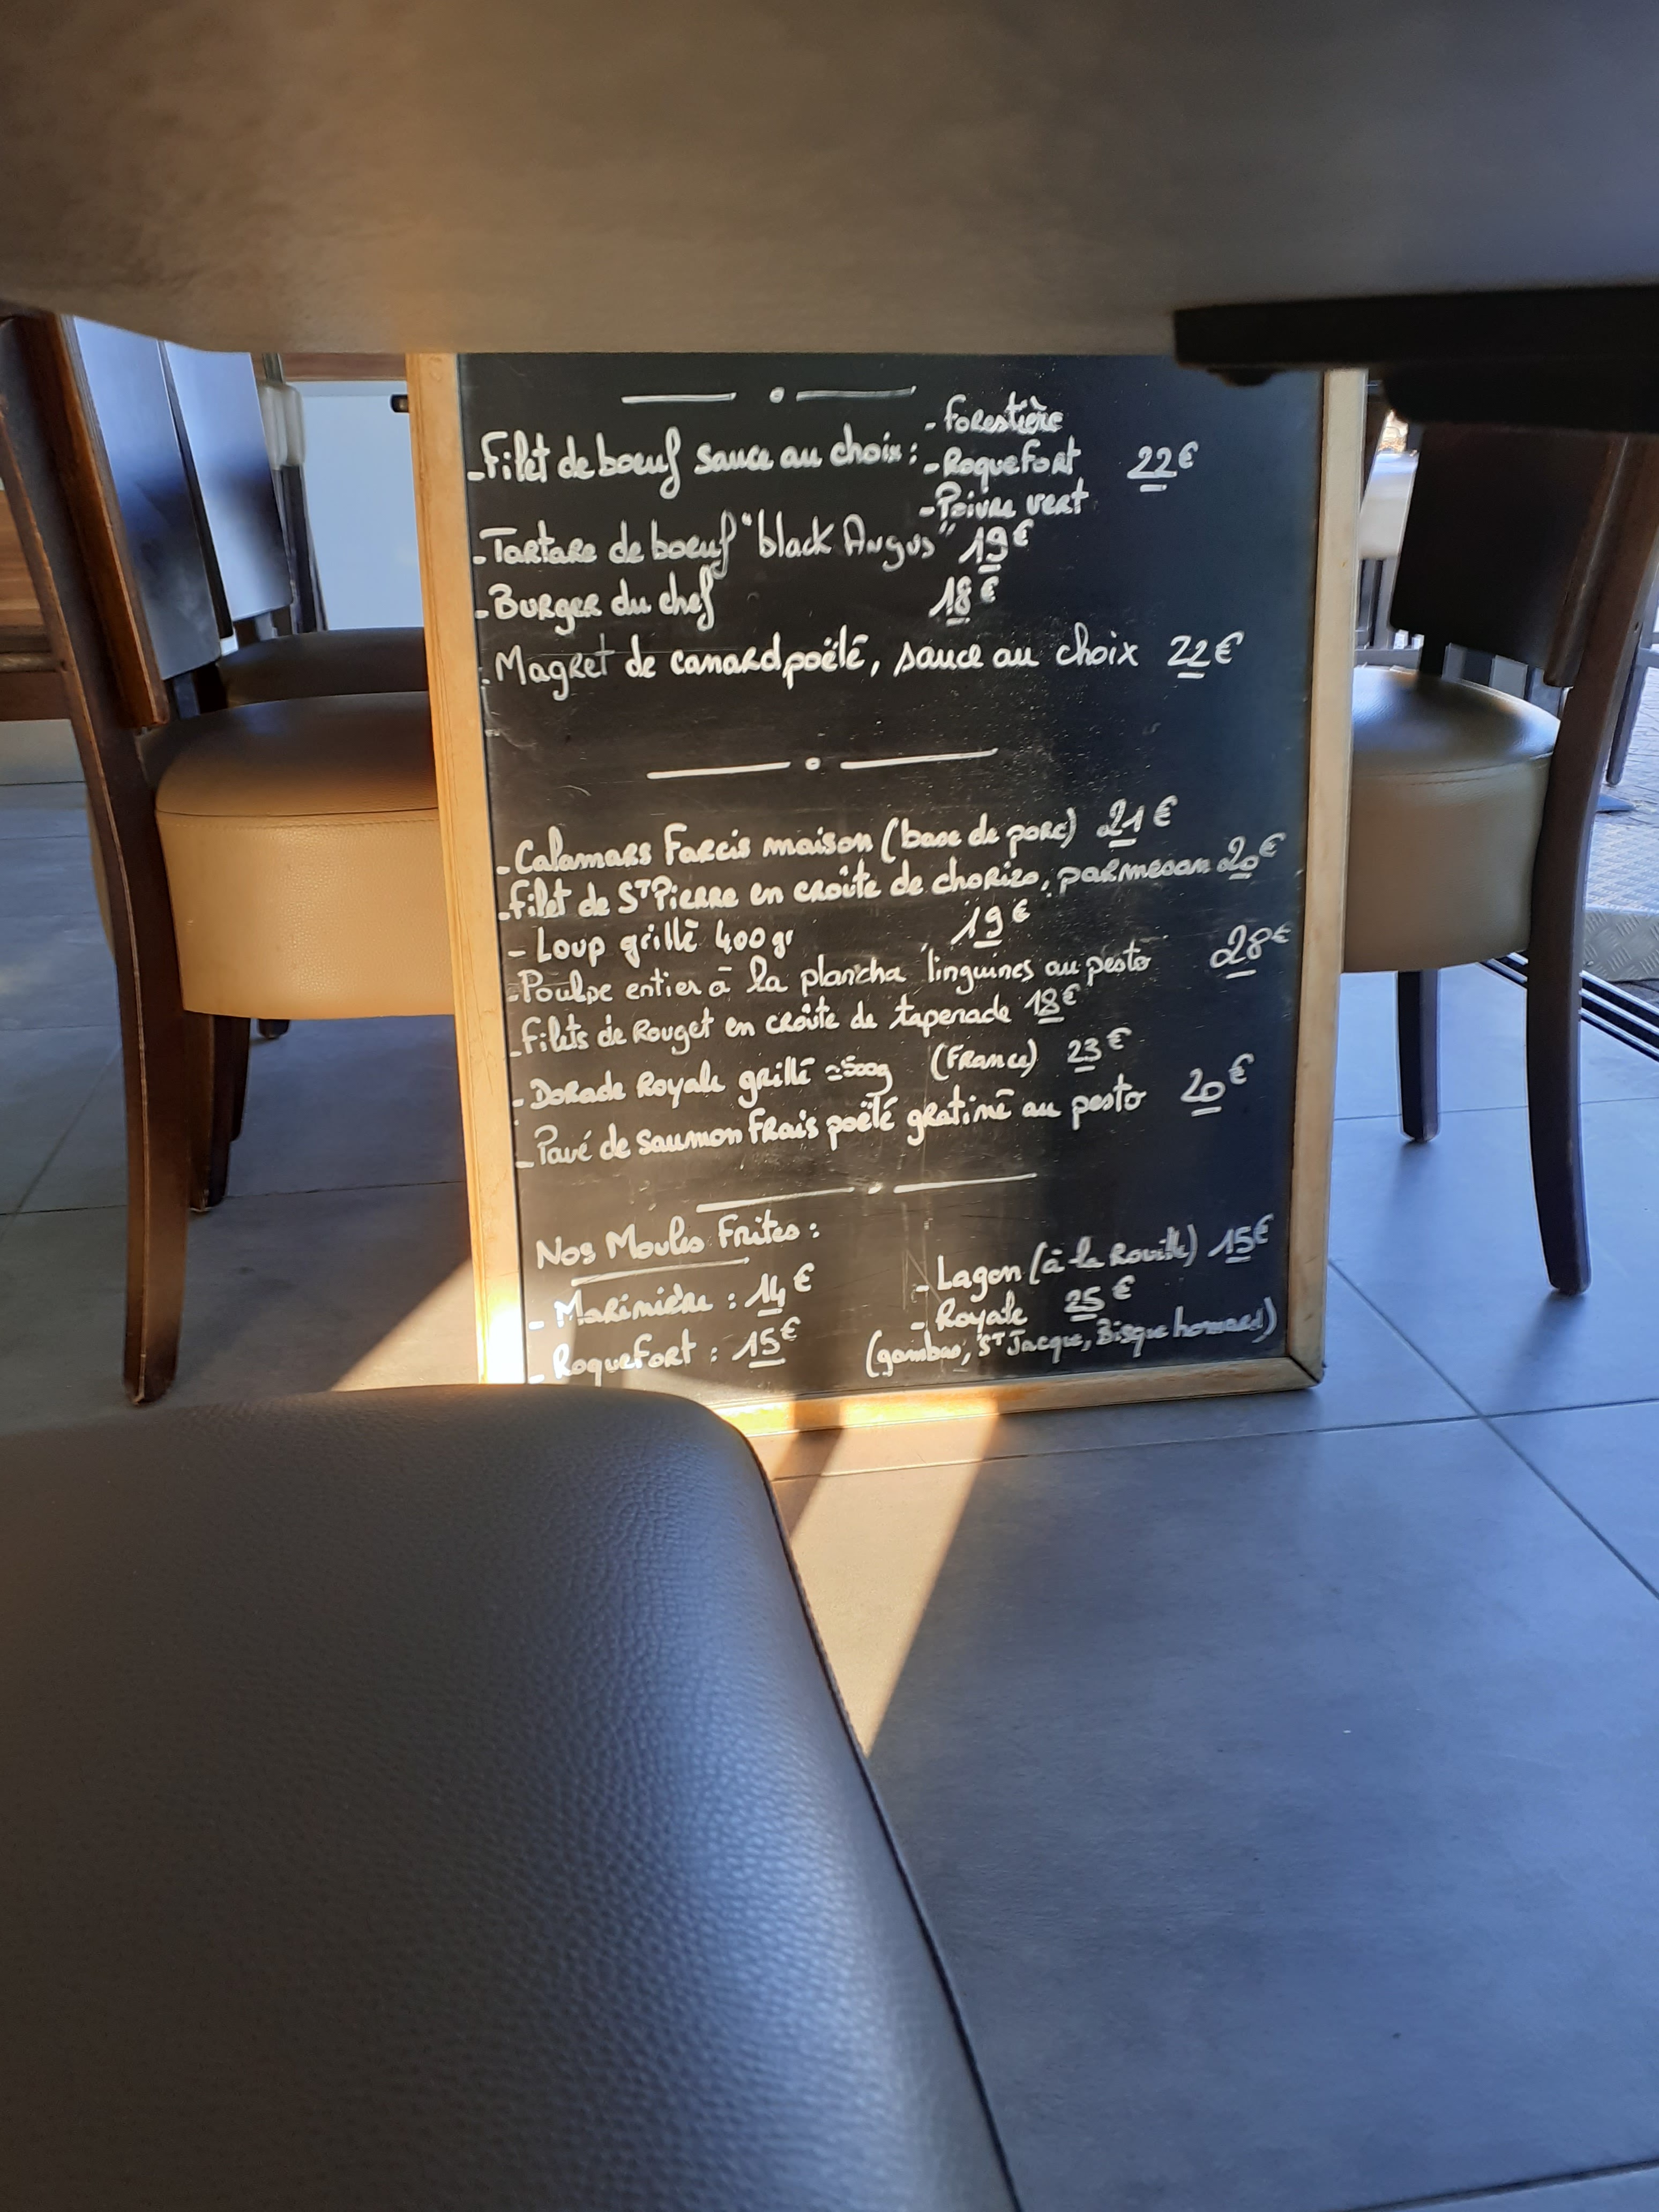 - Forestière
- Filet de boeuf sauce au choix : - Roquefort 22€
- Poivre vert
- Tartare de boeuf "black Angus" 19€
- Burger du chef 18€
- Magret de canard poëlé, sauce au choix 22€
- Calamars Farcis maison (base de porc) 21€
- Filet de St Pierre en croûte de chorizo, parmesan 20€
- Loup grillé 400 gr 19€
- Poulpe entier à la plancha, linguines au pesto 28€
- Filets de Rouget en croûte de tapenade 18€
- Dorade Royale grillé ≃500g (France) 23€
- Pavé de saumon Frais poëlé gratiné au pesto 20€
Nos Moules Frites :
- Marinière : 14€
- Roquefort : 15€
- Lagon (à la Rouille) 15€
- Royale 25€
(gambas, St Jacque, Bisque homard)